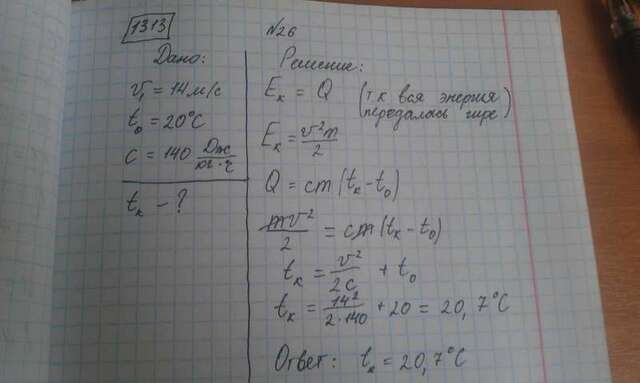 1313
№26
Дано:
v₁ = 14 м/с
t₀ = 20°C
c = 140 Дж/кг·ч
tₖ - ?
Решение:
Eₖ = Q (т.к вся энергия передалась гире)
Eₖ = v²m/2
Q = cm(tₖ - t₀)
mv²/2 = cm(tₖ - t₀)
tₖ = v²/2c + t₀
tₖ = 14²/2·140 + 20 = 20,7°C
Ответ: tₖ = 20,7°C